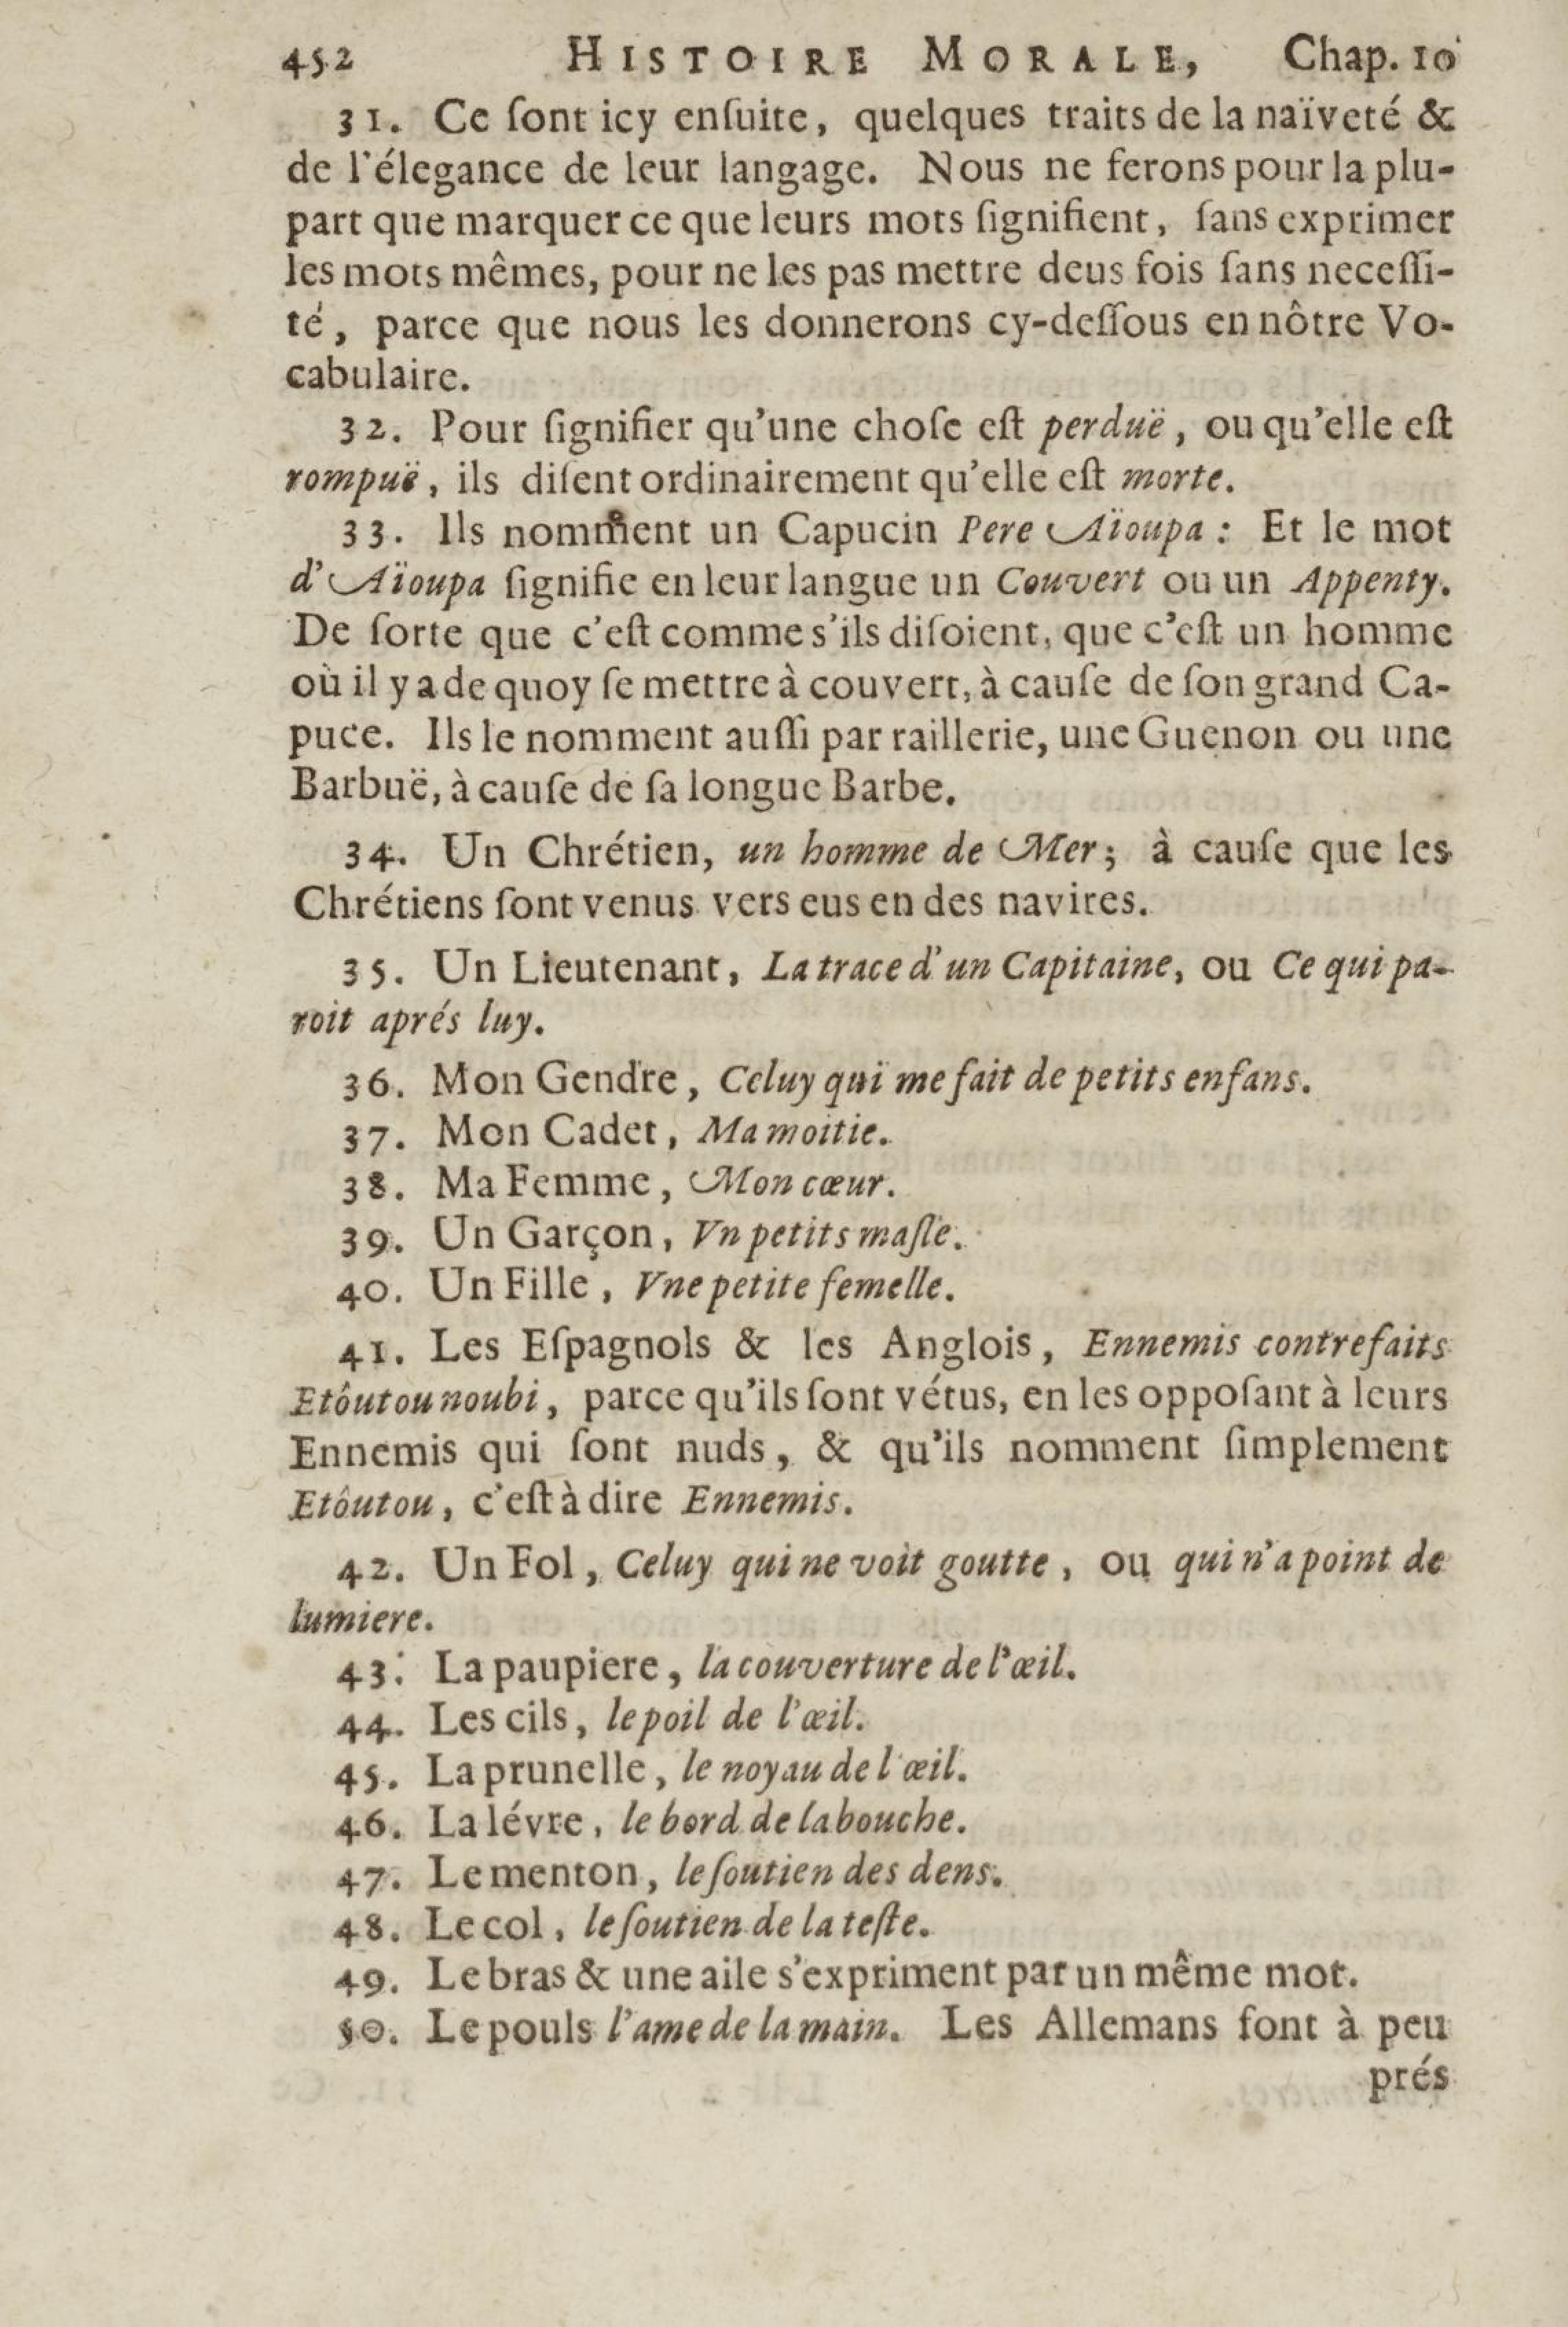 452 HISTOIRE MORALE, Chap. 10
31. Ce ſont icy enſuite, quelques traits de la naïveté &
de l'élegance de leur langage. Nous ne ferons pour la plu-
part que marquer ce que leurs mots ſignifient, ſans exprimer
les mots mêmes, pour ne les pas mettre deus fois ſans neceſſi-
té, parce que nous les donnerons cy-deſſous en nôtre Vo-
cabulaire.
32. Pour ſignifier qu'une choſe eſt perduë, ou qu'elle eſt
rompuë, ils diſent ordinairement qu'elle eſt morte.
33. Ils nomment un Capucin Pere Aïoupa : Et le mot
d'Aïoupa ſignifie en leur langue un Couvert ou un Appenty.
De ſorte que c'eſt comme s'ils diſoient, que c'eſt un homme
où il y a de quoy ſe mettre à couvert, à cauſe de ſon grand Ca-
puce. Ils le nomment auſſi par raillerie, une Guenon ou une
Barbuë, à cauſe de ſa longue Barbe.
34. Un Chrétien, un homme de Mer; à cauſe que les
Chrétiens ſont venus vers eus en des navires.
35. Un Lieutenant, La trace d'un Capitaine, ou Ce qui pa-
roit aprés luy.
36. Mon Gendre, Celuy qui me fait de petits enfans.
37. Mon Cadet, Ma moitie.
38. Ma Femme, Mon cœur.
39. Un Garçon, Vn petits maſle.
40. Un Fille, Vne petite femelle.
41. Les Eſpagnols & les Anglois, Ennemis contrefaits
Etôutou noubi, parce qu'ils ſont vétus, en les oppoſant à leurs
Ennemis qui ſont nuds, & qu'ils nomment ſimplement
Etôutou, c'eſt à dire Ennemis.
42. Un Fol, Celuy qui ne voit goutte, ou qui n'a point de
lumiere.
43. La paupiere, la couverture de l'œil.
44. Les cils, le poil de l'œil.
45. La prunelle, le noyau de l'œil.
46. La lévre, le bord de la bouche.
47. Le menton, le ſoutien des dens.
48. Le col, le ſoutien de la teſte.
49. Le bras & une aile s'expriment par un même mot.
50. Le pouls l'ame de la main. Les Allemans font à peu
prés